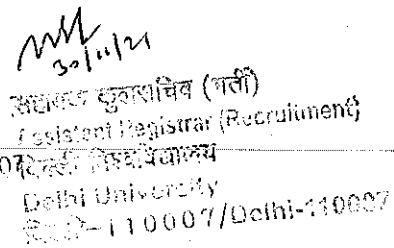 30/11/21
सहायक कुलसचिव (भर्ती)
Assistant Registrar (Recruitment)
07 दिल्ली विश्वविद्यालय
Delhi University
दिल्ली-110007/Delhi-110007